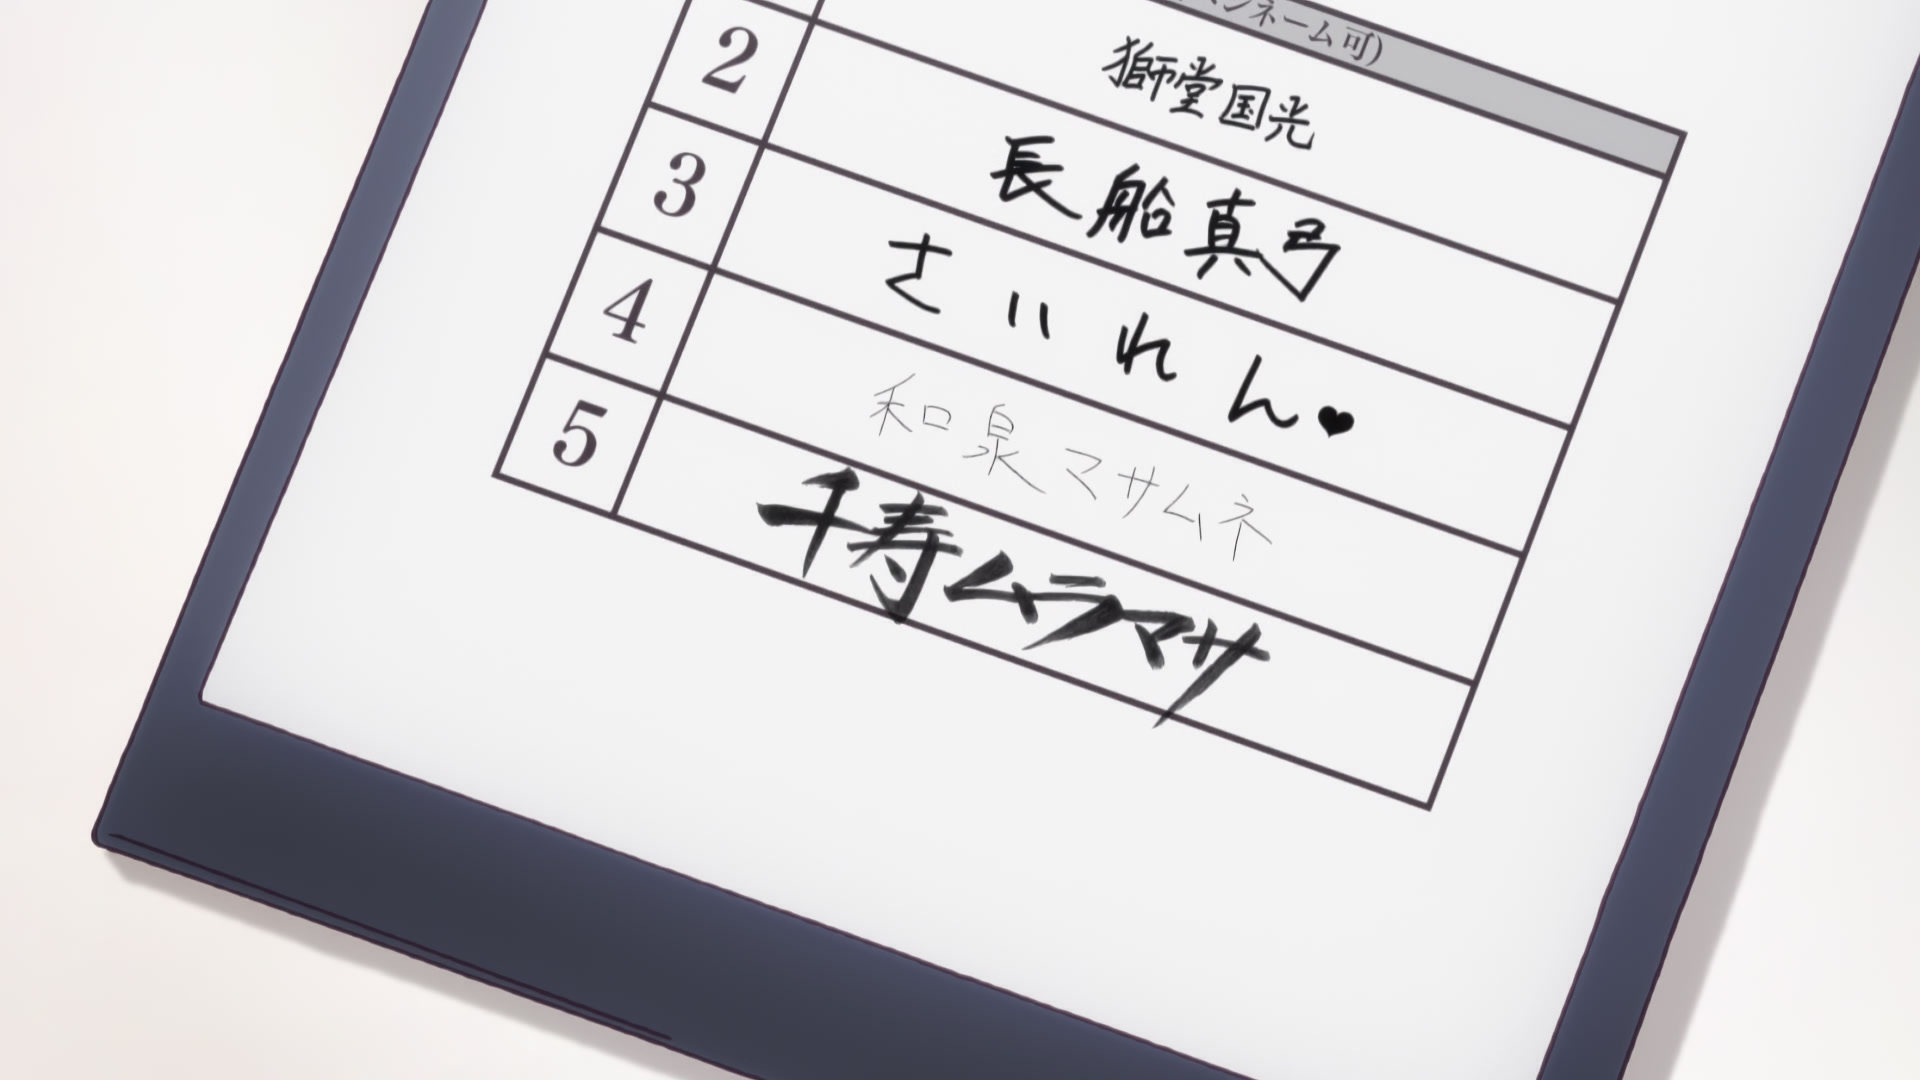 ンネーム可)
獅堂国光
2 長船真弓
3 さいれん♥
4 和泉マサムネ
5 千寿ムラマサ